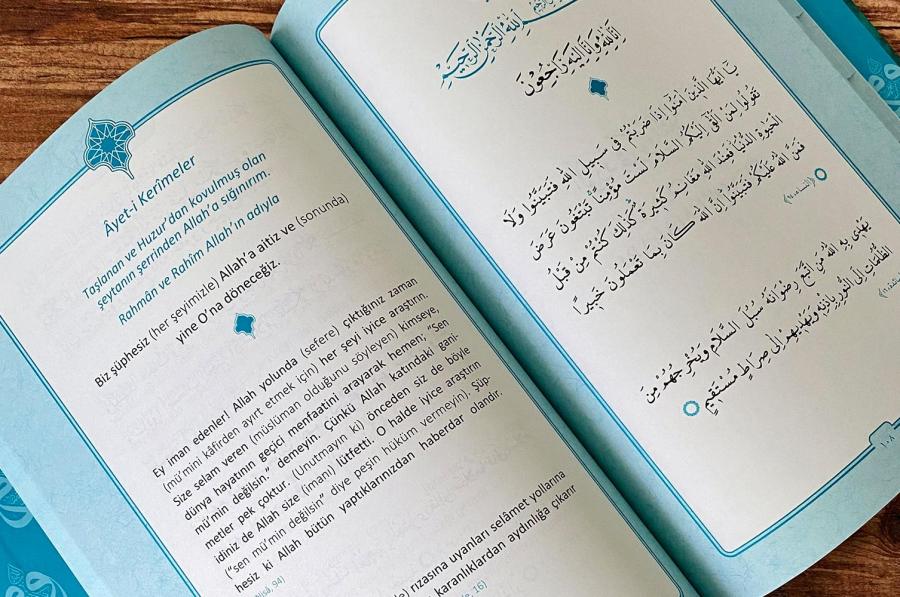 Âyet-i Kerîmeler
Taşlanan ve Huzur'dan kovulmuş olan
şeytanın şerrinden Allah'a sığınırım.
Rahmân ve Rahîm Allah'ın adıyla
Biz şüphesiz (her şeyimizle) Allah'a aitiz ve (sonunda)
yine O'na döneceğiz.
Ey iman edenler! Allah yolunda (sefere) çıktığınız zaman
(mü'mini kâfirden ayırt etmek için) her şeyi iyice araştırın.
Size selam veren (müslüman olduğunu söyleyen) kimseye,
dünya hayatının geçici menfaatini arayarak hemen; "Sen
mü'min değilsin." demeyin. Çünkü Allah katındaki gani-
metler pek çoktur. (Unutmayın ki) önceden siz de böyle
idiniz de Allah size (imanı) lütfetti. O halde iyice araştırın
("sen mü'min değilsin" diye peşin hüküm vermeyin). Şüp-
hesiz ki Allah bütün yaptıklarınızdan haberdar olandır.
Nisâ, 94)
rızasına uyanları selâmet yollarına
karanlıklardan aydınlığa çıkarır
16)
بِسْمِ اللّٰهِ الرَّحْمٰنِ الرَّحِيمِ
اِنَّا لِلّٰهِ وَاِنَّٓا اِلَيْهِ رَاجِعُونَ
يَٓا اَيُّهَا الَّذِينَ اٰمَنُٓوا اِذَا ضَرَبْتُمْ فِي سَبِيلِ اللّٰهِ فَتَبَيَّنُوا وَلَا
تَقُولُوا لِمَنْ اَلْقٰٓى اِلَيْكُمُ السَّلَامَ لَسْتَ مُؤْمِنًا تَبْتَغُونَ عَرَضَ
الْحَيٰوةِ الدُّنْيَا فَعِنْدَ اللّٰهِ مَغَانِمُ كَثِيرَةٌ كَذٰلِكَ كُنْتُمْ مِنْ قَبْلُ
فَمَنَّ اللّٰهُ عَلَيْكُمْ فَتَبَيَّنُوا اِنَّ اللّٰهَ كَانَ بِمَا تَعْمَلُونَ خَبِيرًا
يَهْدِي بِهِ اللّٰهُ مَنِ اتَّبَعَ رِضْوَانَهُ سُبُلَ السَّلَامِ وَيُخْرِجُهُمْ مِنَ
الظُّلُمَاتِ اِلَى النُّورِ بِاِذْنِهِ وَيَهْدِيهِمْ اِلٰى صِرَاطٍ مُسْتَقِيمٍ
١٠٨